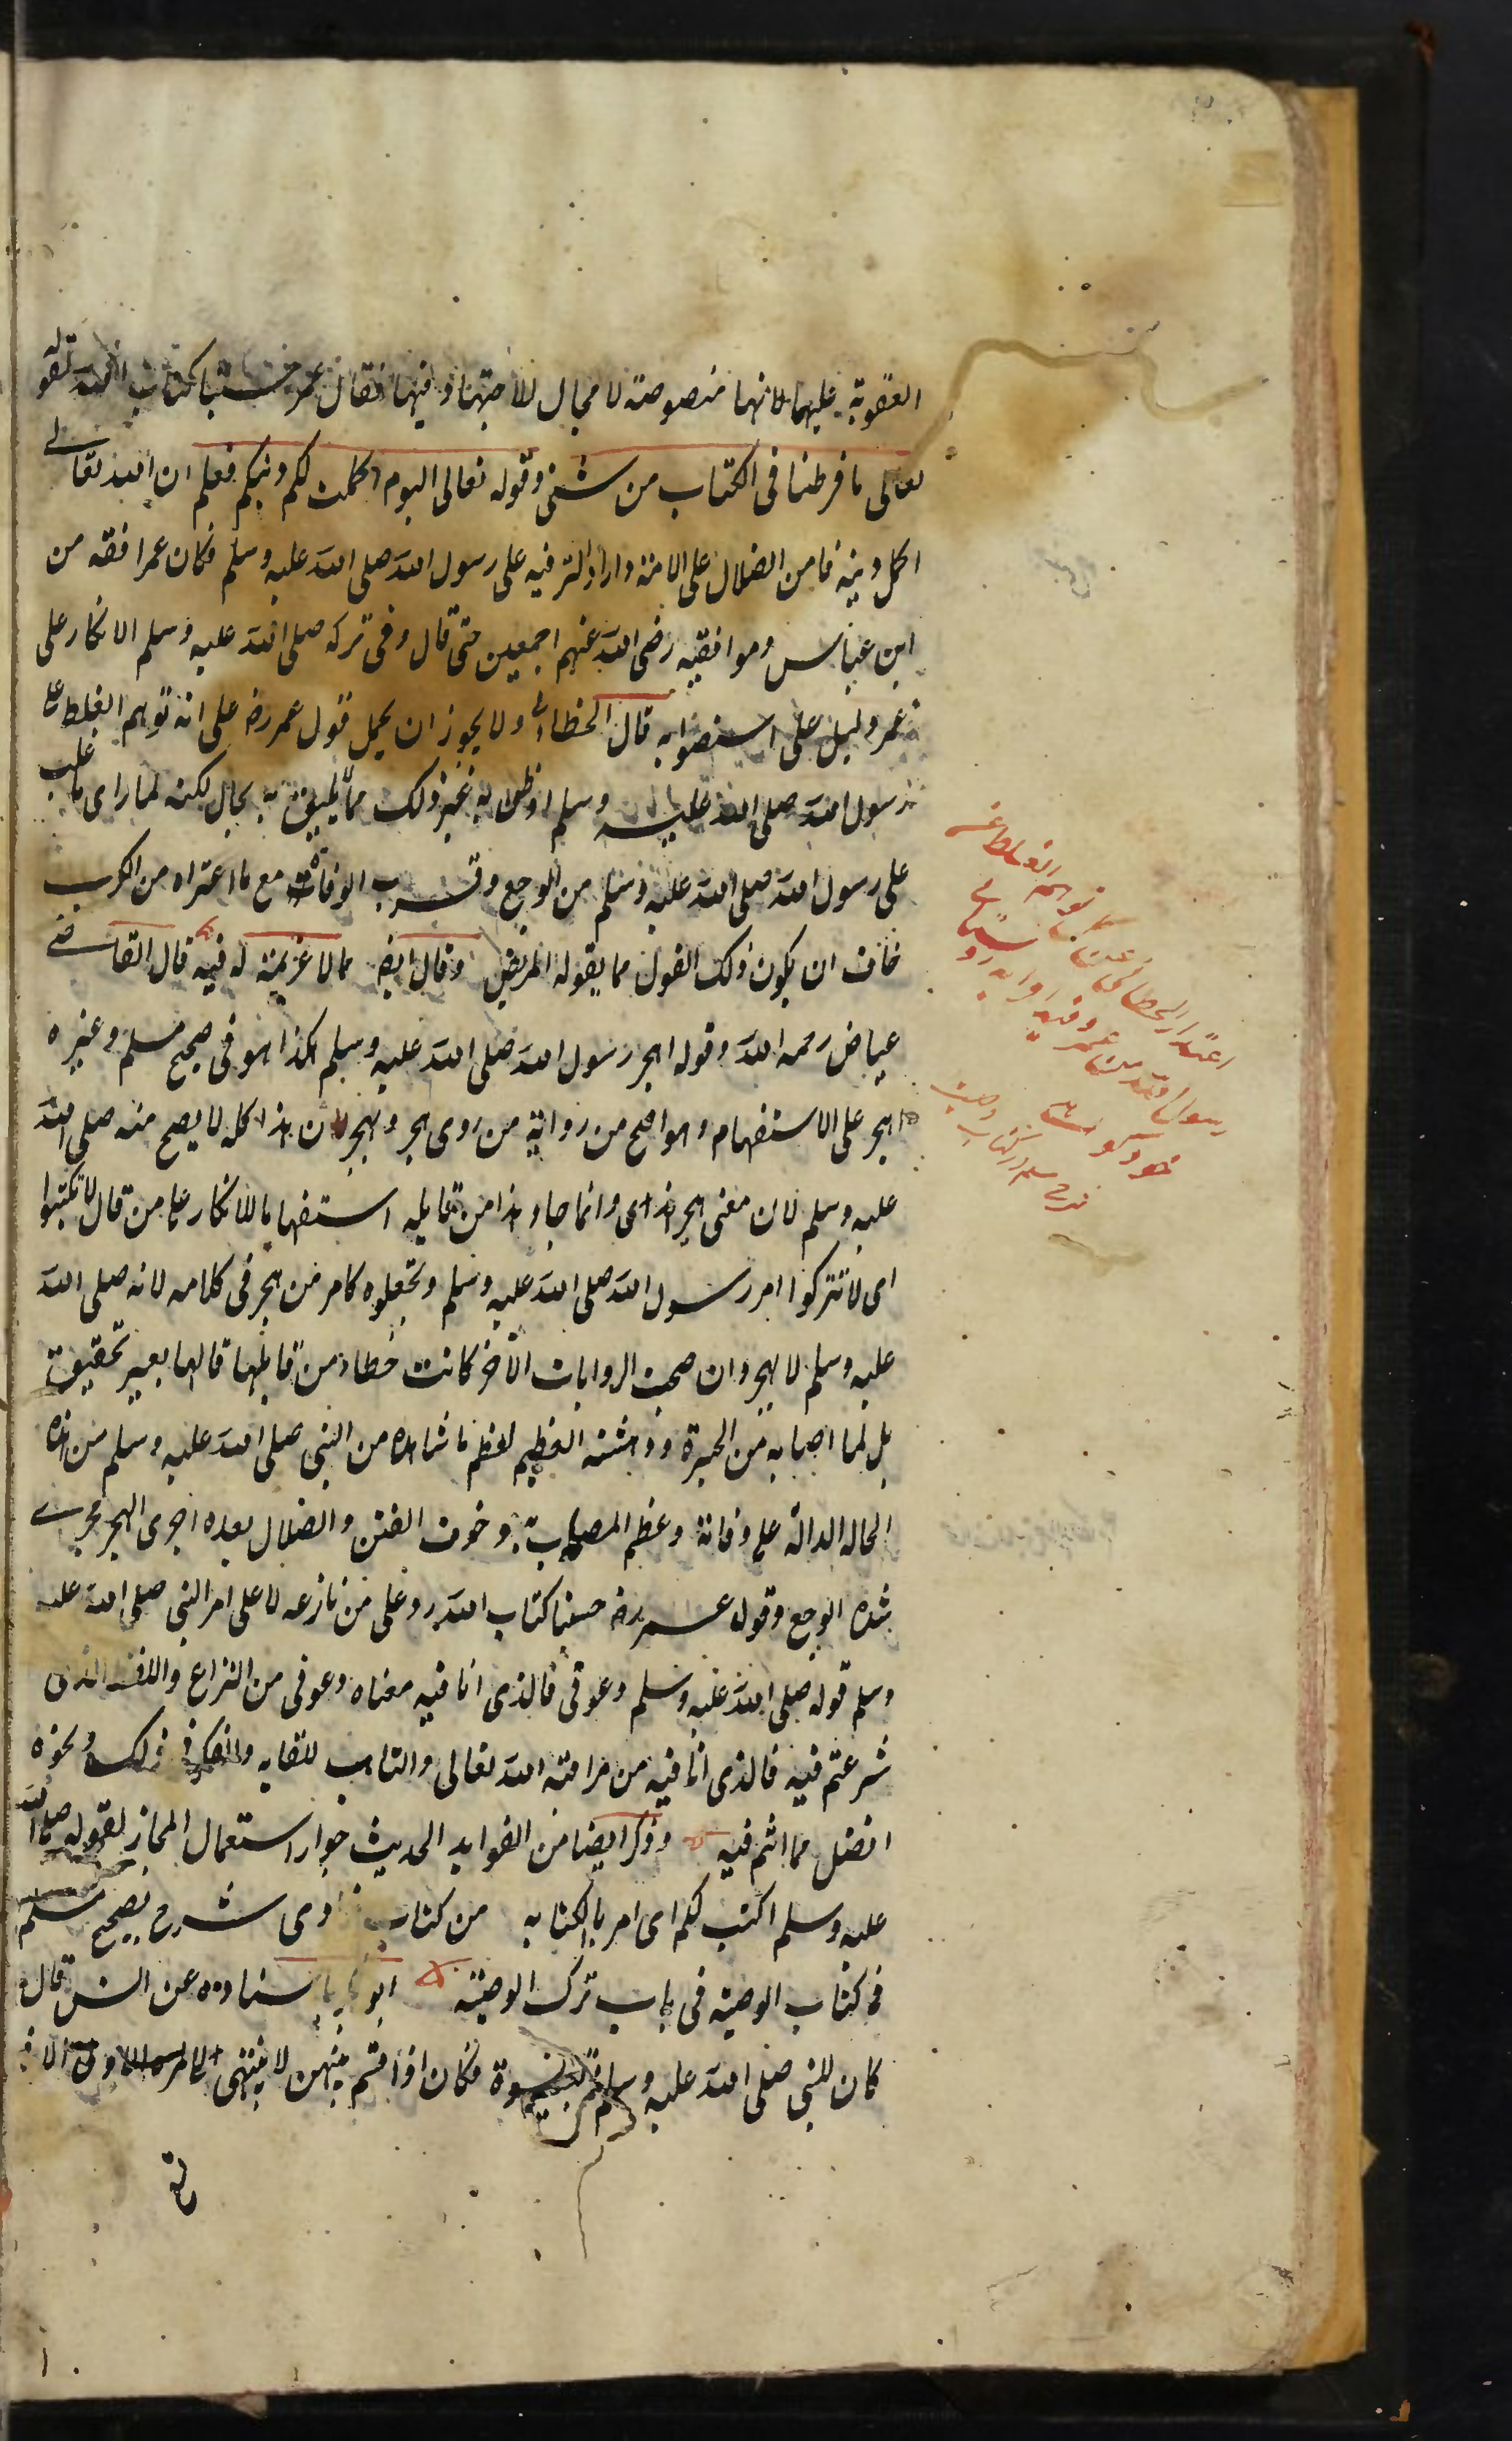 العقوبة عليها لانها منصوصة لا مجال للاجتهاد فيها فقال عمر حسبنا كتاب الله لقوله
تعالى ما فرطنا فى الكتاب من شئ وقوله تعالى اليوم اكملت لكم دينكم فعلم ان الله تعالى
اكمل دينه فامن الضلال على الامة واراد الترفيه على رسول الله صلى الله عليه وسلم فكان عمر افقه من
ابن عباس وموافقيه رضى الله عنهم اجمعين حتى قال وفى تركه صلى الله عليه وسلم الانكار على
عمر دليل على استصوابه قال الخطابى ولا يجوز ان يحمل قول عمر رض على انه توهم الغلط على
رسول الله صلى الله عليه وسلم او ظن به غير ذلك مما لا يليق به بحال لكنه لما راى ما غلب
على رسول الله صلى الله عليه وسلم من الوجع وقرب الوفاة مع ما اعتراه من الكرب
خاف ان يكون ذلك القول مما يقوله المريض وقال ايض مما لا عزيمة له فيه قال القاضى
عياض رحمه الله وقوله اهجر رسول الله صلى الله عليه وسلم هكذا هو فى صحيح مسلم وغيره
اهجر على الاستفهام وهو اصح من رواية من روى هجر ويهجر لان هذا كله لا يصح منه صلى الله
عليه وسلم لان معنى هجر هذى وانما جاء هذا من قايله استفهاما للانكار على من قال لا تكتبوا
اى لا تتركوا امر رسول الله صلى الله عليه وسلم وتجعلوه كامر من هجر فى كلامه لانه صلى الله
عليه وسلم لا يهجر وان صحت الروايات الآخر كانت خطاء من قايلها قالها بغير تحقيق
بل لما اصابه من الحيرة ودهشته العظيم لعظم ما شاهده من النبى صلى الله عليه وسلم من هذه
الحاله الدالة على وفاته وعظم المصاب به وخوف الفتن والضلال بعده اجرى الهجر مجرى
شدة الوجع وقول عمر رض حسبنا كتاب الله رد على من نازعه لا على امر النبى صلى الله عليه
وسلم قوله صلى الله عليه وسلم دعوفى فالذى انا فيه معناه دعوفى من النزاع واللغط الذى
شرعتم فيه فالذى انا فيه من مراقبة الله تعالى والتاهب للقايه والفكر فى ذلك ونحوه
افضل مما انتم فيه وذكر ايضا من الفوايد الحديث جواز استعمال المجاز لقوله صلى الله
عليه وسلم اكتب لكم اى امر بالكتابه من كتاب شرح صحيح مسلم
فى كتاب الوصية فى باب ترك الوصية باسناده عن انس قال
كان للنبى صلى الله عليه وسلم تسع نسوة فكان اذا قسم بينهن لا ينتهى الى المرءة الاولى الا فى
اعتذار الخطابى عن
توهم الغلط على
رسول الله من عمر
شرح مسلم در كتاب وصيت